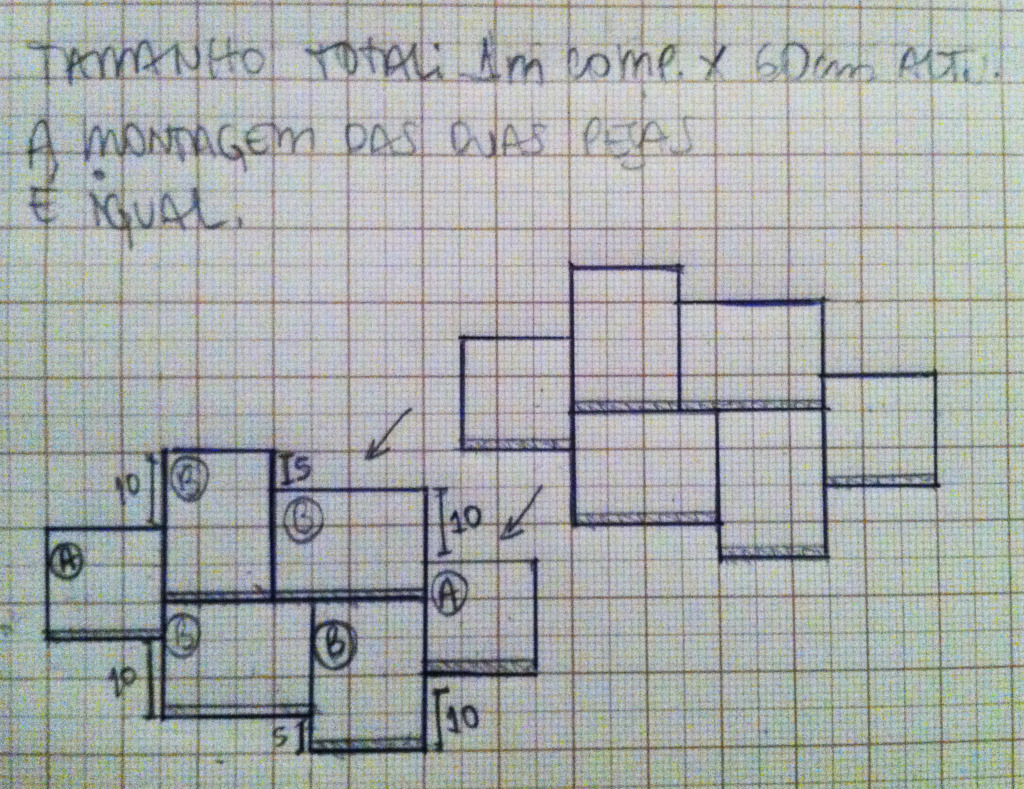 TAMANHO TOTAL: 1m COMP. X 60cm ALT.
A MONTAGEM DAS DUAS PEÇAS
É IGUAL.
10
B
I5
B
10
A
A
B
B
10
10
5